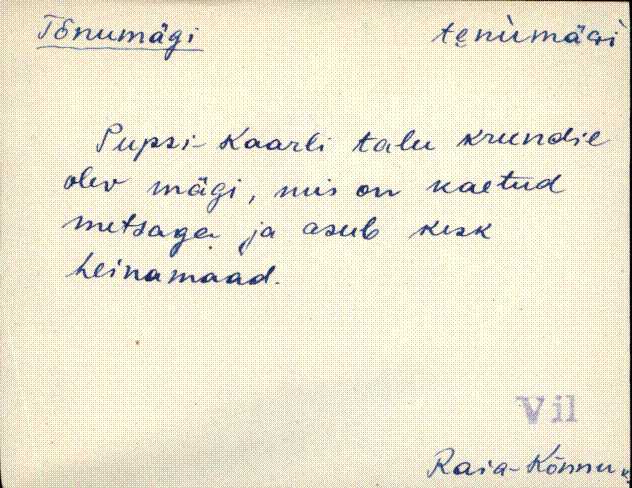 Tõnumägi tenùmäɢi
Pupsi-Kaarli talu krundil
olev mägi, mis on kaetud
metsaga ja asub kesk
heinamaad.
Vil
Raia-Kõnnu k.